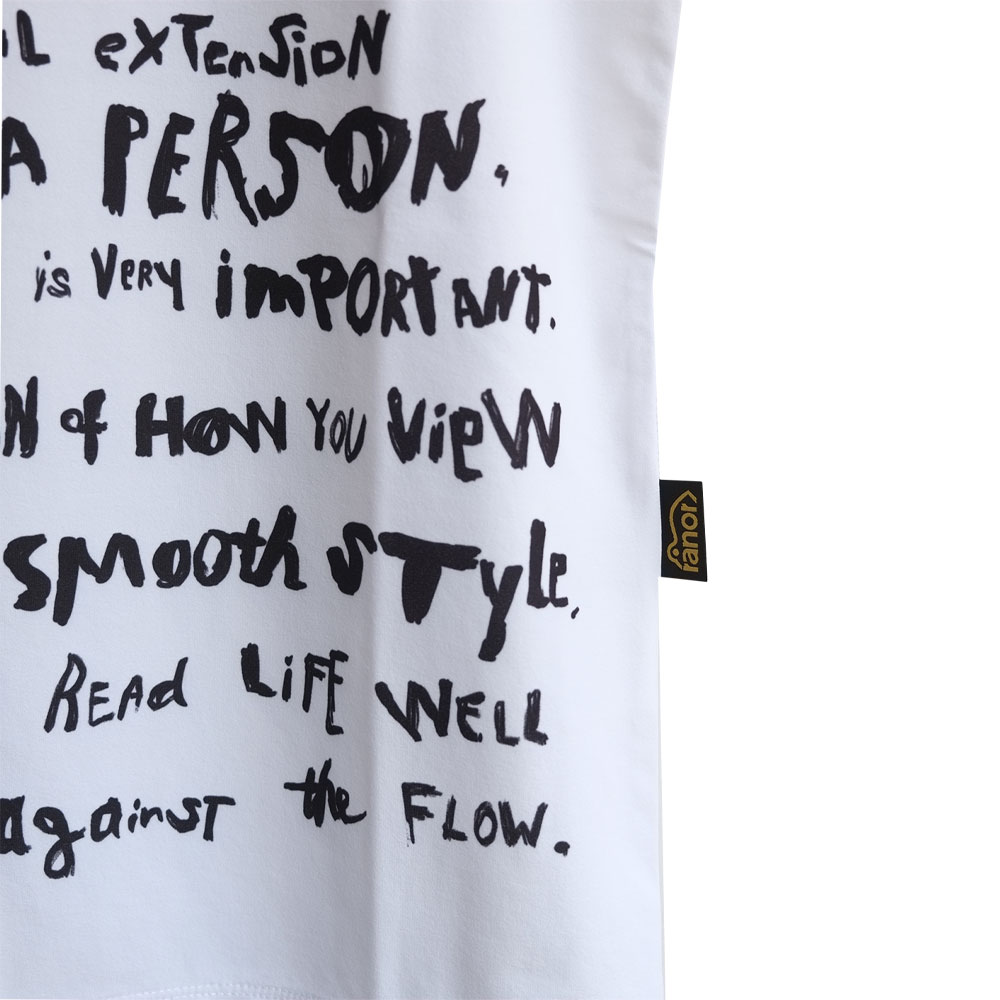 L exTension
A PERSON.
is VeRy imPORtANT.
N of HOW YOU View
smooth sTyle.
READ LiFE WELL
against the FLOW.
ranor